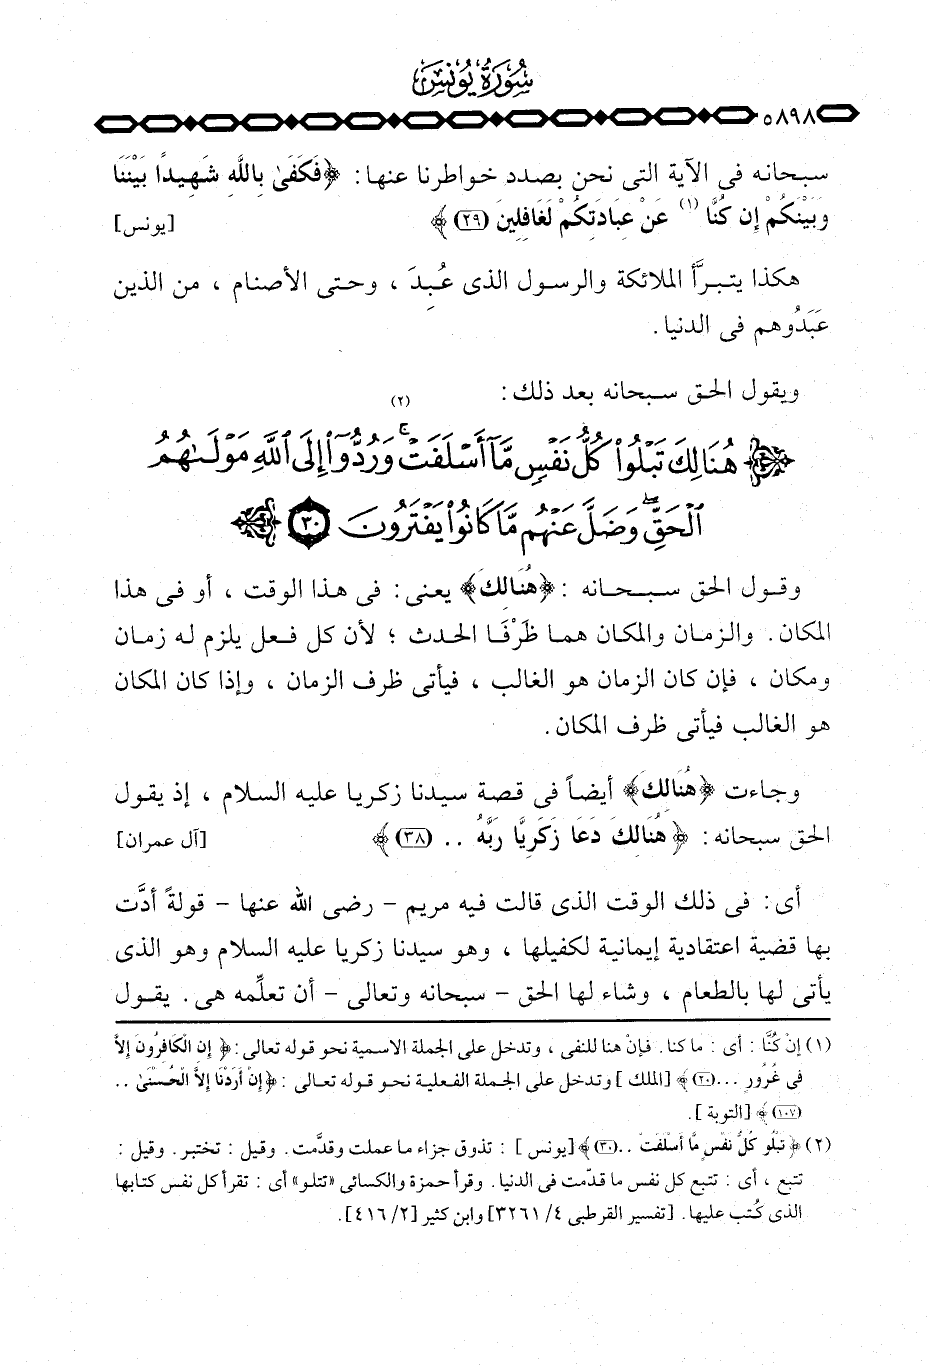 سُورَةُ يُونُسَ
٥٨٩٨
سبحانه فى الآية التى نحن بصدد خواطرنا عنها: ﴿فَكَفَىٰ بِاللَّهِ شَهِيدًا بَيْنَنَا
وَبَيْنَكُمْ إِن كُنَّا (١) عَنْ عِبَادَتِكُمْ لَغَافِلِينَ (٢٩)﴾ [يونس]
هكذا يتبرَّأ الملائكة والرسول الذى عُبِدَ ، وحتى الأصنام ، من الذين
عَبَدُوهم فى الدنيا.
ويقول الحق سبحانه بعد ذلك:
(٢)
﴿هُنَالِكَ تَبْلُوا۟ كُلُّ نَفْسٍ مَّآ أَسْلَفَتْ ۚ وَرُدُّوٓا۟ إِلَى ٱللَّهِ مَوْلَىٰهُمُ
ٱلْحَقِّ ۖ وَضَلَّ عَنْهُم مَّا كَانُوا۟ يَفْتَرُونَ ٣٠﴾
وقول الحق سبحانه : ﴿هُنَالِكَ﴾ يعنى: فى هذا الوقت ، أو فى هذا
المكان. والزمان والمكان هما ظَرْفَا الحدث ؛ لأن كل فعل يلزم له زمان
ومكان ، فإن كان الزمان هو الغالب ، فيأتى ظرف الزمان ، وإذا كان المكان
هو الغالب فيأتى ظرف المكان.
وجاءت ﴿هُنَالِكَ﴾ أيضاً فى قصة سيدنا زكريا عليه السلام ، إذ يقول
الحق سبحانه: ﴿هُنَالِكَ دَعَا زَكَرِيَّا رَبَّهُ .. (٣٨)﴾ [آل عمران]
أى: فى ذلك الوقت الذى قالت فيه مريم - رضى الله عنها - قولةً أدَّت
بها قضية اعتقادية إيمانية لكفيلها ، وهو سيدنا زكريا عليه السلام وهو الذى
يأتى لها بالطعام ، وشاء لها الحق - سبحانه وتعالى - أن تعلِّمه هى. يقول
(١) إنْ كُنَّا : أى : ما كنا. فإنْ هنا للنفى ، وتدخل على الجملة الاسمية نحو قوله تعالى: ﴿ إِنِ الْكَافِرُونَ إِلاَّ
فِى غُرُورٍ ... (٢٠)﴾ [الملك] وتدخل على الجملة الفعلية نحو قوله تعالى : ﴿إِنْ أَرَدْنَا إِلاَّ الْحُسْنَىٰ ..
(١٠٧)﴾ [التوبة].
(٢) ﴿ تَبْلُو كُلُّ نَفْسٍ مَّا أَسْلَفَتْ .. (٣٠)﴾ [يونس] : تذوق جزاء ما عملت وقدَّمت. وقيل : تختبر. وقيل :
تتبع ، أى : تتبع كل نفس ما قدَّمت فى الدنيا. وقرأ حمزة والكسائى «تتلو» أى : تقرأ كل نفس كتابها
الذى كُتب عليها. [تفسير القرطبى ٤/ ٣٢٦١] وابن كثير [٢/ ٤١٦].